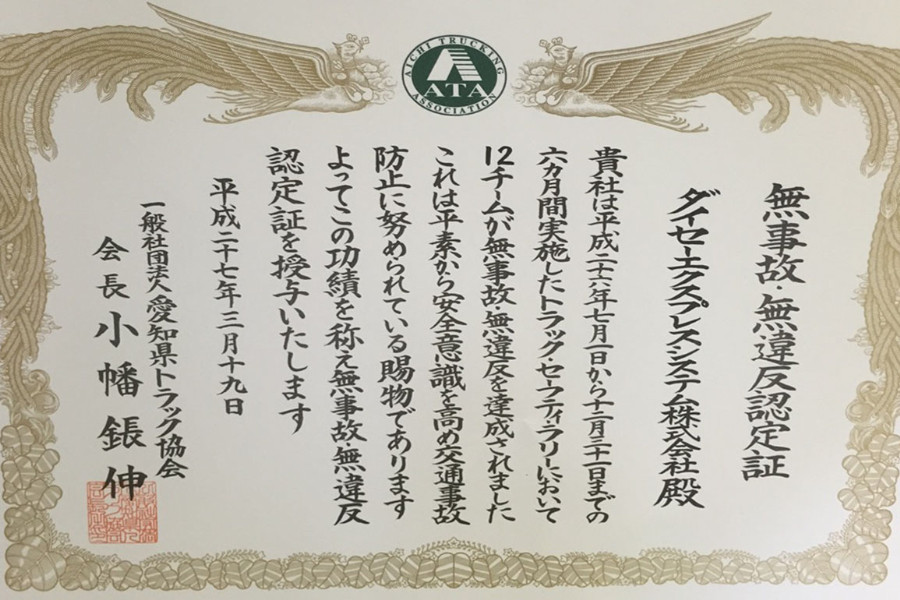 AICHI TRUCKING
ATA
ASSOCIATION
無事故・無違反認定証
ダイセーエクスプレスシステム株式会社殿
貴社は平成二十六年七月一日から十二月三十一日までの
六カ月間実施したトラック・セーフティラリーにおいて
12チームが無事故・無違反を達成されました
これは平素から安全意識を高め交通事故
防止に努められている賜物であります
よってこの功績を称え無事故・無違反
認定証を授与いたします
平成二十七年三月十九日
一般社団法人愛知県トラック協会
会長 小幡鋹伸